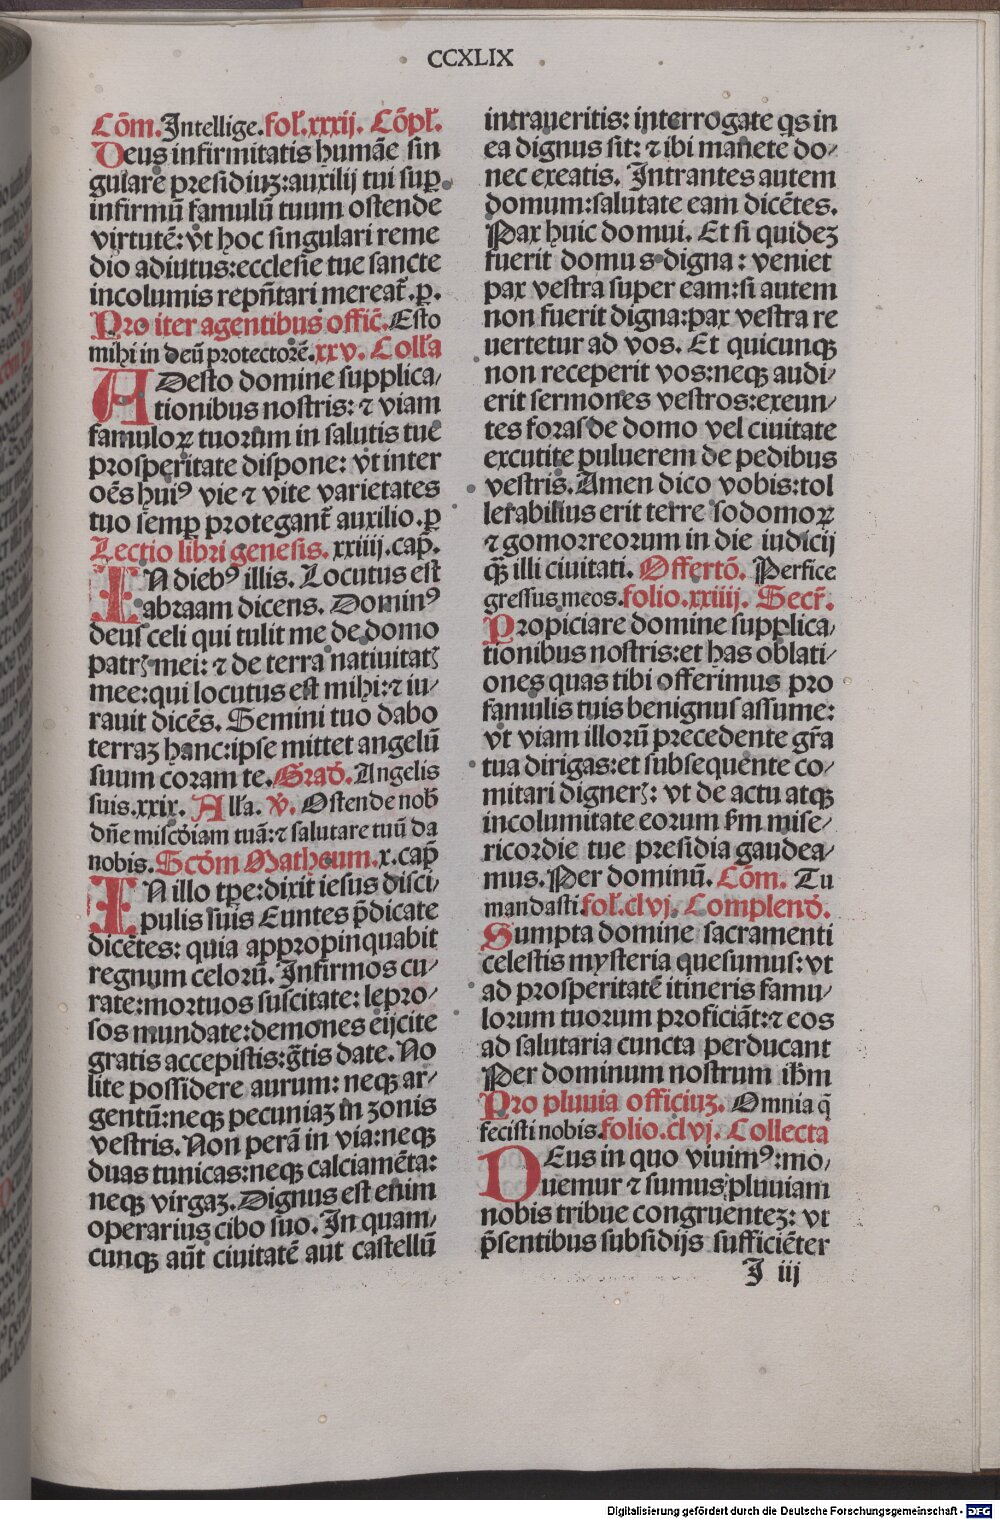 CCXLIX
Cōm. Intellige. fol̄. xxxij. Cōpl̄.
Deus infirmitatis humāe sin
gulare presidiuꝫ: auxilij tui suꝑ
infirmū famulū tuum ostende
virtutē: vt hoc singulari reme
dio adiutus: ecclesie tue sancte
incolumis repn̄tari mereat̄. ꝑ.
Pro iter agentibus officē. Esto
mihi in deū protectorē. xxv. Coll̄a
ADesto domine supplica/
tionibus nostris: ⁊ viam
famuloꝝ tuorum in salutis tue
prosperitate dispone: vt inter
oēs huiꝰ vie ⁊ vite varietates
tuo semꝑ protegant̄ auxilio. ꝑ
Lectio libri genesis. xxiiij. cap̄.
IN diebꝰ illis. Locutus est
abraam dicens. Dominꝰ
deus celi qui tulit me de domo
patrꝭ mei: ⁊ de terra natiuitatꝭ
mee: qui locutus est mihi: ⁊ iu/
rauit dicēs. Semini tuo dabo
terraꝫ hanc: ipse mittet angelū
suum coram te. Grad̄. Angelis
suis. xxix. All̄a. ℣. Ostende nob̄
dn̄e misc̄diam tuā: ⁊ salutare tuū da
nobis. Scd̄m Matheum. x. cap̄
IN illo tp̄e: dixit iesus disci/
pulis suis Euntes p̄dicate
dicētes: quia appropinquabit
regnum celorū. Infirmos cu/
rate: mortuos suscitate: lepro/
sos mundate: demones eijcite
gratis accepistis: gr̄tis date. No
lite possidere aurum: neqꝫ ar/
gentū: neqꝫ pecuniaꝫ in zonis
vestris. Non perā in via: neqꝫ
duas tunicas: neqꝫ calciamēta:
neqꝫ virgaꝫ. Dignus est enim
operarius cibo suo. In quam/
cunqꝫ aūt ciuitatē aut castellū
intraueritis: interrogate qs in
ea dignus sit: ⁊ ibi manete do/
nec exeatis. Intrantes autem
domum: salutate eam dicētes.
Pax huic domui. Et si quideꝫ
fuerit domus digna: veniet
pax vestra super eam: si autem
non fuerit digna: pax vestra re
uertetur ad vos. Et quicunqꝫ
non receperit vos: neqꝫ audi/
erit sermones vestros: exeun/
tes foras de domo vel ciuitate
excutite puluerem de pedibus
vestris. Amen dico vobis: tol
lerabilius erit terre sodomoꝝ
⁊ gomorreorum in die iudicij
qꝫ̄ illi ciuitati. Offertō. Perfice
gressus meos. folio. xxiiij. Secr̄.
Propiciare domine supplica/
tionibus nostris: et has oblati/
ones quas tibi offerimus pro
famulis tuis benignus assume:
vt viam illorū precedente gr̄a
tua dirigas: et subsequente co/
mitari dignerꝭ: vt de actu atqꝫ
incolumitate eorum scd̄m mise/
ricordie tue presidia gaudea/
mus. Per dominū. Cōm. Tu
mandasti. fol̄. clvj. Complend̄.
Sumpta domine sacramenti
celestis mysteria quesumus: vt
ad prosperitatē itineris famu/
lorum tuorum proficiāt: ⁊ eos
ad salutaria cuncta perducant
Per dominum nostrum ihm̄
Pro pluuia officiuꝫ. Omnia q̄
fecisti nobis. folio. clvj. Collecta
DEus in quo viuimꝰ: mo/
uemur ⁊ sumus pluuiam
nobis tribue congruenteꝫ: vt
p̄sentibus subsidijs sufficiēter
I iij
Digitalisierung gefördert durch die Deutsche Forschungsgemeinschaft - DFG